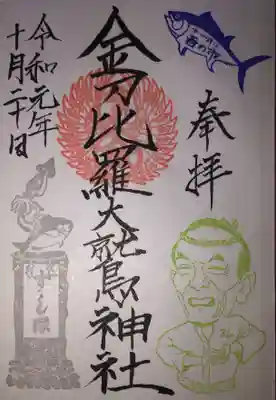 奉拝
金刀比羅大鷲神社
令和元年
十月二十日